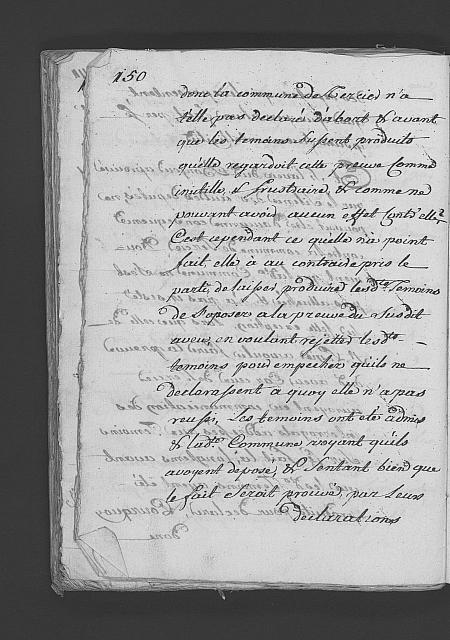 150
donc la commune de Cercier n'a
t'elle pas declaré d'abort & avant
que les temoins fussent produits
qu'elle regardoit cette preuve comme
inutille & frustraire, & comme ne
pouvant avoir aucun effet contr'elle,
C'est cependant ce quelle n'a point
fait, elle à au contraire pris le
parti de laisser produire lesd.ts Temoins
de s'oposer a la preuve du susdit
aveu, en voulant rejetter lesd.ts
temoins pour empecher qu'ils ne
declarassent a quoy elle n'a pas
reussi, Les temoins ont eté admis
& lad.te Commune voyant quils
avoyent deposé, & sentant bien que
le fait seroit prouvé par leurs
declarations